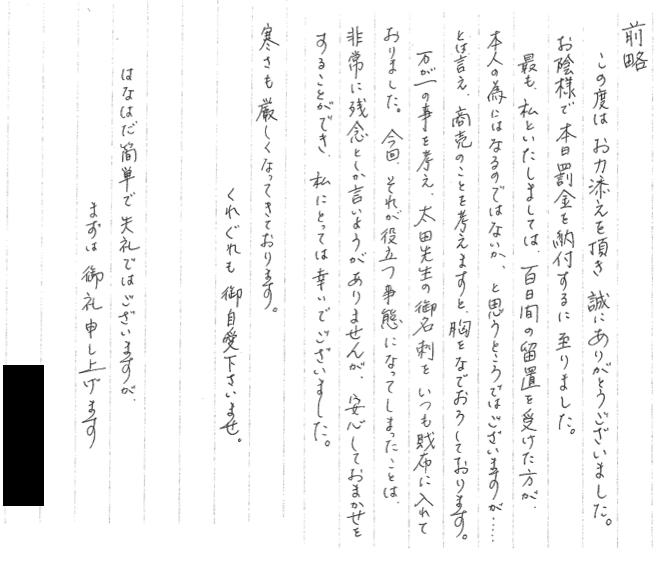 前略
この度は お力添えを頂き 誠にありがとうございました。
お陰様で 本日 罰金を納付するに至りました。
最も、私といたしましては、百日間の留置を受けた方が、
本人の為にはなるのではないか、と思うところではございますが……
とは言え、商売のことを考えますと、胸をなでおろしております。
万が一の事を考え、太田先生の御名刺を いつも財布に入れて
おりました。今回、それが役立つ事態になってしまったことは、
非常に残念としか言いようがありませんが、安心しておまかせを
することができ、私にとっては幸いでございました。
寒さも厳しくなってきております。
くれぐれも 御自愛下さいませ。
はなはだ簡単で失礼ではございますが、
まずは 御礼申し上げます